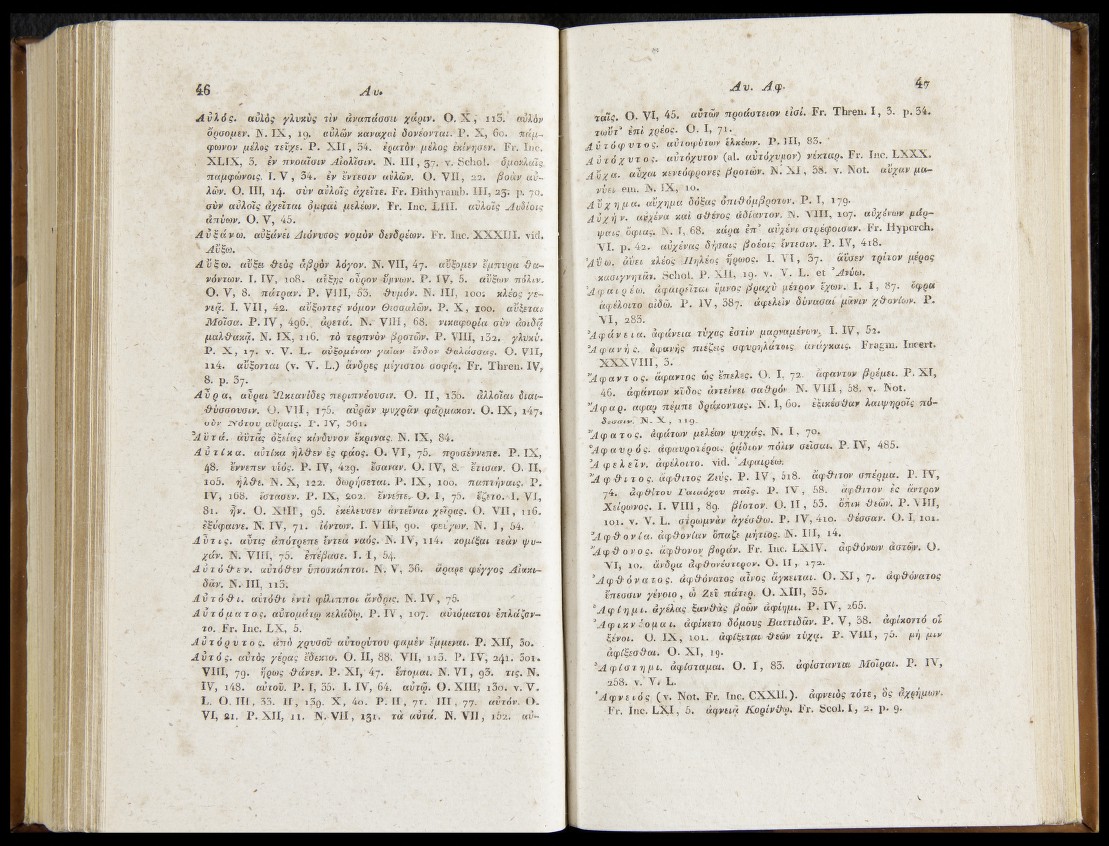 46 Αυ.
Αὐλός. αὐλὸς γλυκὺς τὶν ἀναπάσσει χάριν. O. X, 113. αὐλὸν
ὄρσομεν. N. IX, 19. αὐλῶν καναχαὶ δονέονται. P. X, 60. πάμ-
φωνον μέλος τεῦχε. P. XII, 34. ἐρατὸν μέλος ἐκίνησεν. Fr. Inc.
XLIX, 3. ἐν πνοαῖσιν Αἰολῇσιν. N. III, 37. v. Schol. ὁμοκλαῖς
παμφώνοις. I. V, 34. ἐν ἔντεσιν αὐλῶν. O. VII, 22. βοὰν αὐ-
λῶν. O. III, 14. σὺν αὐλοῖς ἀχεῖτε. Fr. Dithyramb. III, 23. p. 70.
σὺν αὐλοῖς ἀχεῖται ὀμφαὶ μελέων. Fr. Inc. LIII. αὐλοῖς Λυδίοις
ἀπύων. O. V, 45.
Αὐξάνω. αὐξάνει Διόνυσος νομὸν δενδρέων. Fr. Inc. XXXIII. vid.
Αὔξω.
Αὔξω. αὔξει θεὸς ἁβρὸν λόγον. N. VII, 47. αὔξομεν ἔμπυρα θα-
νόντων. I. IV, 108. αὔξῃς οὖρον ὕμνων. P. IV, 5. αὔξων πόλιν.
O. V, 8. πάτραν. P. VIII, 53. θυμόν. N. III, 100. κλέος γε-
νεᾷ. I. VII, 42. αὔξοντες νόμον Θεσσαλῶν. P. X, 100. αὔξεται
Μοῖσα. P. IV, 496. ἀρετά. N. VIII, 68. νικαφορία σὺν ἀοιδᾷ
μαλθακᾷ. N. IX, 116. τὸ τερπνὸν βροτῶν. P. VIII, 132. γλυκύ.
P. X, 17. v. V. L. αὐξομέναν γαῖαν ἔνδον θαλάσσας. O. VII,
114. αὔξονται (v. V. L.) ἄνδρες μέγιστοι σοφίῃ. Fr. Thren. IV,
8. p. 37.
Αὔρα, αὖραι Ὠκεανίδες περιπνέουσιν. O. II, 130. ἀλλοῖαι διαι-
θύσσουσιν. O. VII, 175. αὐρᾶν ψυχρᾶν φάρμακον. O. IX, 147.
σὺν Νότου αὔραις. P. IV, 361.
Ἀϋτά. ἀϋτᾶς ὀξείας κίνδυνον ἔκρινας. N. IX, 84.
Αὐτίκα. αὐτίκα ἦλθεν ἐς φάος. O. VI, 75. προσέννεπε. P. IX,
48. ἔννεπεν υἱός. P. IV, 429. ἔσαναν. O. IV, 8. ἔτισαν. O. II,
105. ἦλθε. N. X, 122. δωρήσεται. P. IX, 100. παπτήναις. P.
IV, 168. ἵστασεν. P. IX, 202. ἔννεπε. O. I, 75. ἕζετο. I. VI,
81. ἦν. O. XIII, 95. ἐκέλευσεν ἀντεῖναι χεῖρας. O. VII, 116.
ἐξύφαινε. N. IV, 71. ἰόντων. I. VIII, 90. φεύγων. N. I, 54.
Αὖτις. αὖτις ἀπότρεπε ἔντεα ναός. N. IV, 114. κομίξαι τεὰν ψυ-
χάν. N. VIII, 75. ἐπέβασε. I. I, 54.
Αὐτόθεν. αὐτόθεν ὑποσκάπτοι. N. V, 36. ἄραρε φέγγος Αἰακι-
δᾶν. N. III, 113.
Αὐτόθι. αὐτόθι ἐντὶ φίλιπποι ἄνδρες. N. IV, 75.
Αὐτόματος. αὐτομάτῳ κελάδῳ. P. IV, 107. αὐτόματοι ἐπλάζον-
το. Fr. Inc. LX, 5.
Αὐτόρυτος. ἀπὸ χρυσοῦ αὐτορύτου φαμὲν ἔμμεναι. P. XII, 30.
Αὐτός. αὐτὸς γέρας ἔδεκτο. O. II, 88. VII, 113. P. IV, 241. 301.
VIII, 79. ἥρως θάνεν. P. XI, 47. ἕπομαι. N. VI, 93. τις. N.
IV, 148. αὐτοῦ. P. I, 55. I. IV, 64. αὐτῷ. O. XIII, 130. v. V.
L. O. III, 33. II, 139. X, 40. P. II, 71. III, 77. αὐτόν. O.
VI, 21. P. XII, 11. N. VII, 131. τὰ αὐτά. N. VII, 152. αὐ-
Αυ. Αφ. 47
ταῖς. O. VI, 45. αὐτῶν προάστειον εἰσί. Fr. Thren. I, 3. p. 34.
τωὔτ' ἐπὶ χρέος. O. I, 71.
Αὐτόφυτος. αὐτοφύτων ἑλκέων. P. III, 83.
Αὐτόχυτος. αὐτόχυτον (al. αὐτόχυμον) νέκταρ. Fr. Inc. LXXX.
Αὔχα. αὖχαι κενεόφρονες βροτῶν. N. XI, 38. v. Not. αὔχαν μα-
νύει em. N. IX, 10.
Αὔχημα. αὔχημα δόξας ὀπιθόμβροτον. P. I, 179.
Αὐχήν. αὐχένα καὶ σθένος ἀδίαντον. N. VIII, 107. αὐχένων μάρ-
ψαις ὄφιας. N. I, 68. κάρα ἐπ' αὐχένι στρέφοισαν. Fr. Hyporch.
VI. p. 42. αὐχένας δήσαις βοέοις ἔντεσιν. P. IV, 418.
Ἀΰω. ἀύει κλέος Πηλέος ἥρωος. I. VI, 37. ἄϋσεν τρίτον μέρος
κασιγνητᾶν. Schol. P. XII, 19. v. V. L. et Ἀνύω.
Ἀφαιρέω. ἀφαιρεῖται ὕμνος βραχὺ μέτρον ἔχων. I. I, 87. ὄφρα
ἀφέλοιτο αἰδῶ. P. IV, 387. ἀφελεῖν δύνασαι μᾶνιν χθονίων. P.
VI, 283.
Ἀφάνεια. ἀφάνεια τύχας ἐστὶν μαρναμένων. I. IV, 52.
Ἀφανής. ἀφανὴς πιέζεις σφυρηλάτοις ἀνάγκαις. Fragm. Incert.
XXXVIII, 3.
Ἄφαντος. ἄφαντος ὡς ἔπελες. O. I, 72. ἄφαντον βρέμει. P. XI,
46. ἀφάντων κῦδος ἀντείνει σαθρόν. N. VIII, 58. v. Not.
Ἄφαρ. ἄφαρ πέμπε δράκοντας. N. I, 60. ἐξικέσθαν λαιψηροῖς πό-
δεσσιν. N. X, 119.
Ἄφατος. ἀφάτων μελέων ψυχάς. N. I, 70.
Ἀφαυρός. ἀφαυροτέροις ῥᾴδιον πόλιν σεῖσαι. P. IV, 485.
Ἀφελεῖν. ἀφέλοιτο. vid. Ἀφαιρέω.
Ἄφθιτος. ἄφθιτος Ζεύς. P. IV, 518. ἄφθιτον σπέρμα. P. IV,
74. ἀφθίτου Γαιαόχου παῖς. P. IV, 58. ἄφθιτον ἐς ἄντρον
Χείρωνος. I. VIII, 89. βίοτον. O. II, 53. ὄπιν θεῶν. P. VIII,
101. v. V. L. στρωμνὰν ἀγέσθω. P. IV, 410. θέσσαν. O. I, 101.
Ἀφθονία. ἀφθονίαν ὄπαζε μήτιος. N. III, 14.
Ἄφθονος. ἄφθονον βοράν. Fr. Inc. LXIV. ἀφθόνων ἀστῶν. O.
VI, 10. ἄνδρα ἀφθονέστερον. O. II, 172.
Ἀφθόνατος. ἀφθόνατος αἶνος ἄγκειται. O. XI, 7. ἀφθόνατος
ἔπεσσιν γένοιο, ὦ Ζεῦ πάτερ. O. XIII, 35.
Ἀφίημι. ἀγέλας ξανθὰς βοῶν ἀφίημι. P. IV, 265.
Ἀφικνέομαι. ἀφίκετο δόμους Βαττιδᾶν. P. V, 38. ἀφίκοντό οἱ
ξένοι. O. IX, 101. ἀφίξεται θεῶν τύχᾳ. P. VIII, 75. μή μιν
ἀφίξεσθαι. O. XI, 19.
Ἀφίστημι. ἀφίσταμαι. O. I, 83. ἀφίστανται Μοῖραι. P. IV,
258. v. V. L.
Ἀφνειός (v. Not. Fr. Inc. CXXII.). ἀφνειὸς τότε, ὃς ἀχρήμων.
Fr. Inc. LXI, 5. ἀφνειᾷ Κορίνθῳ. Fr. Scol. I, 2. p. 9.